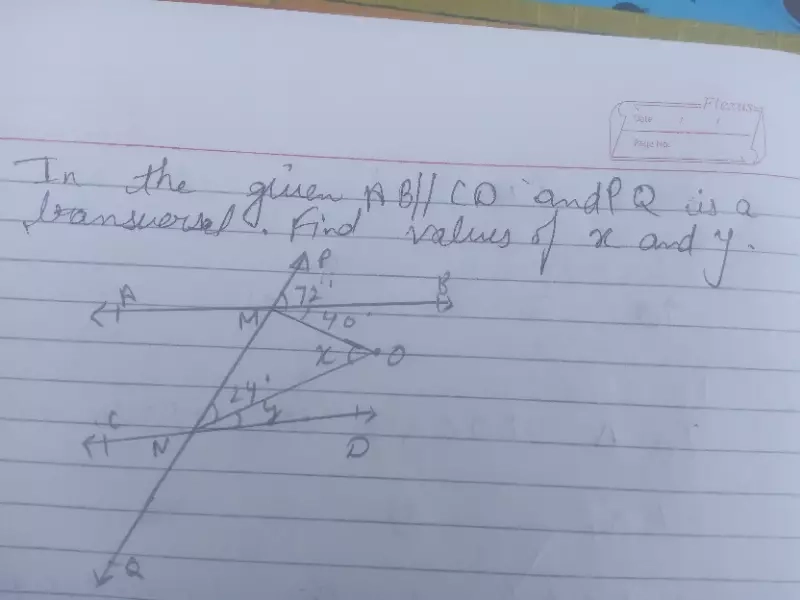 Flexus
Date / /
Page No.
In the given AB// CD and PQ is a
transversal. Find values of x and y.
P
A
72°
B
M
40°
x
O
24°
C
y
N
D
Q